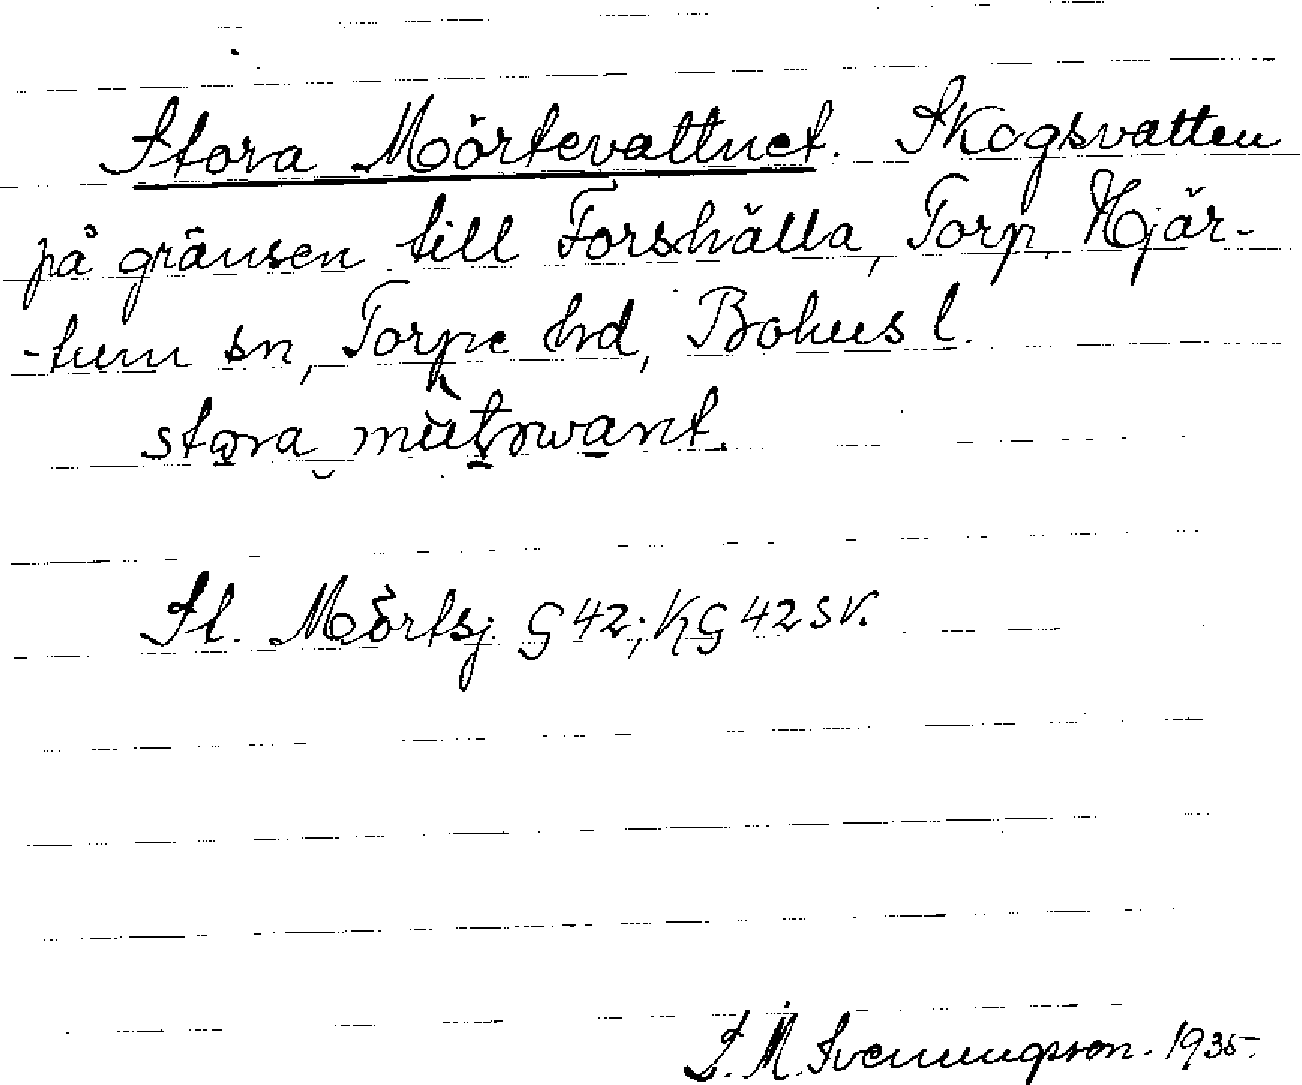 Stora Mörtevattnet. Skogsvatten
på gränsen till Forshälla, Torp, Hjär-
-tum sn, Torpe hd, Bohus l.
stora
St. Mörtsj. G 42; KG 42 SV.
S. M. Svenungson. 1935.